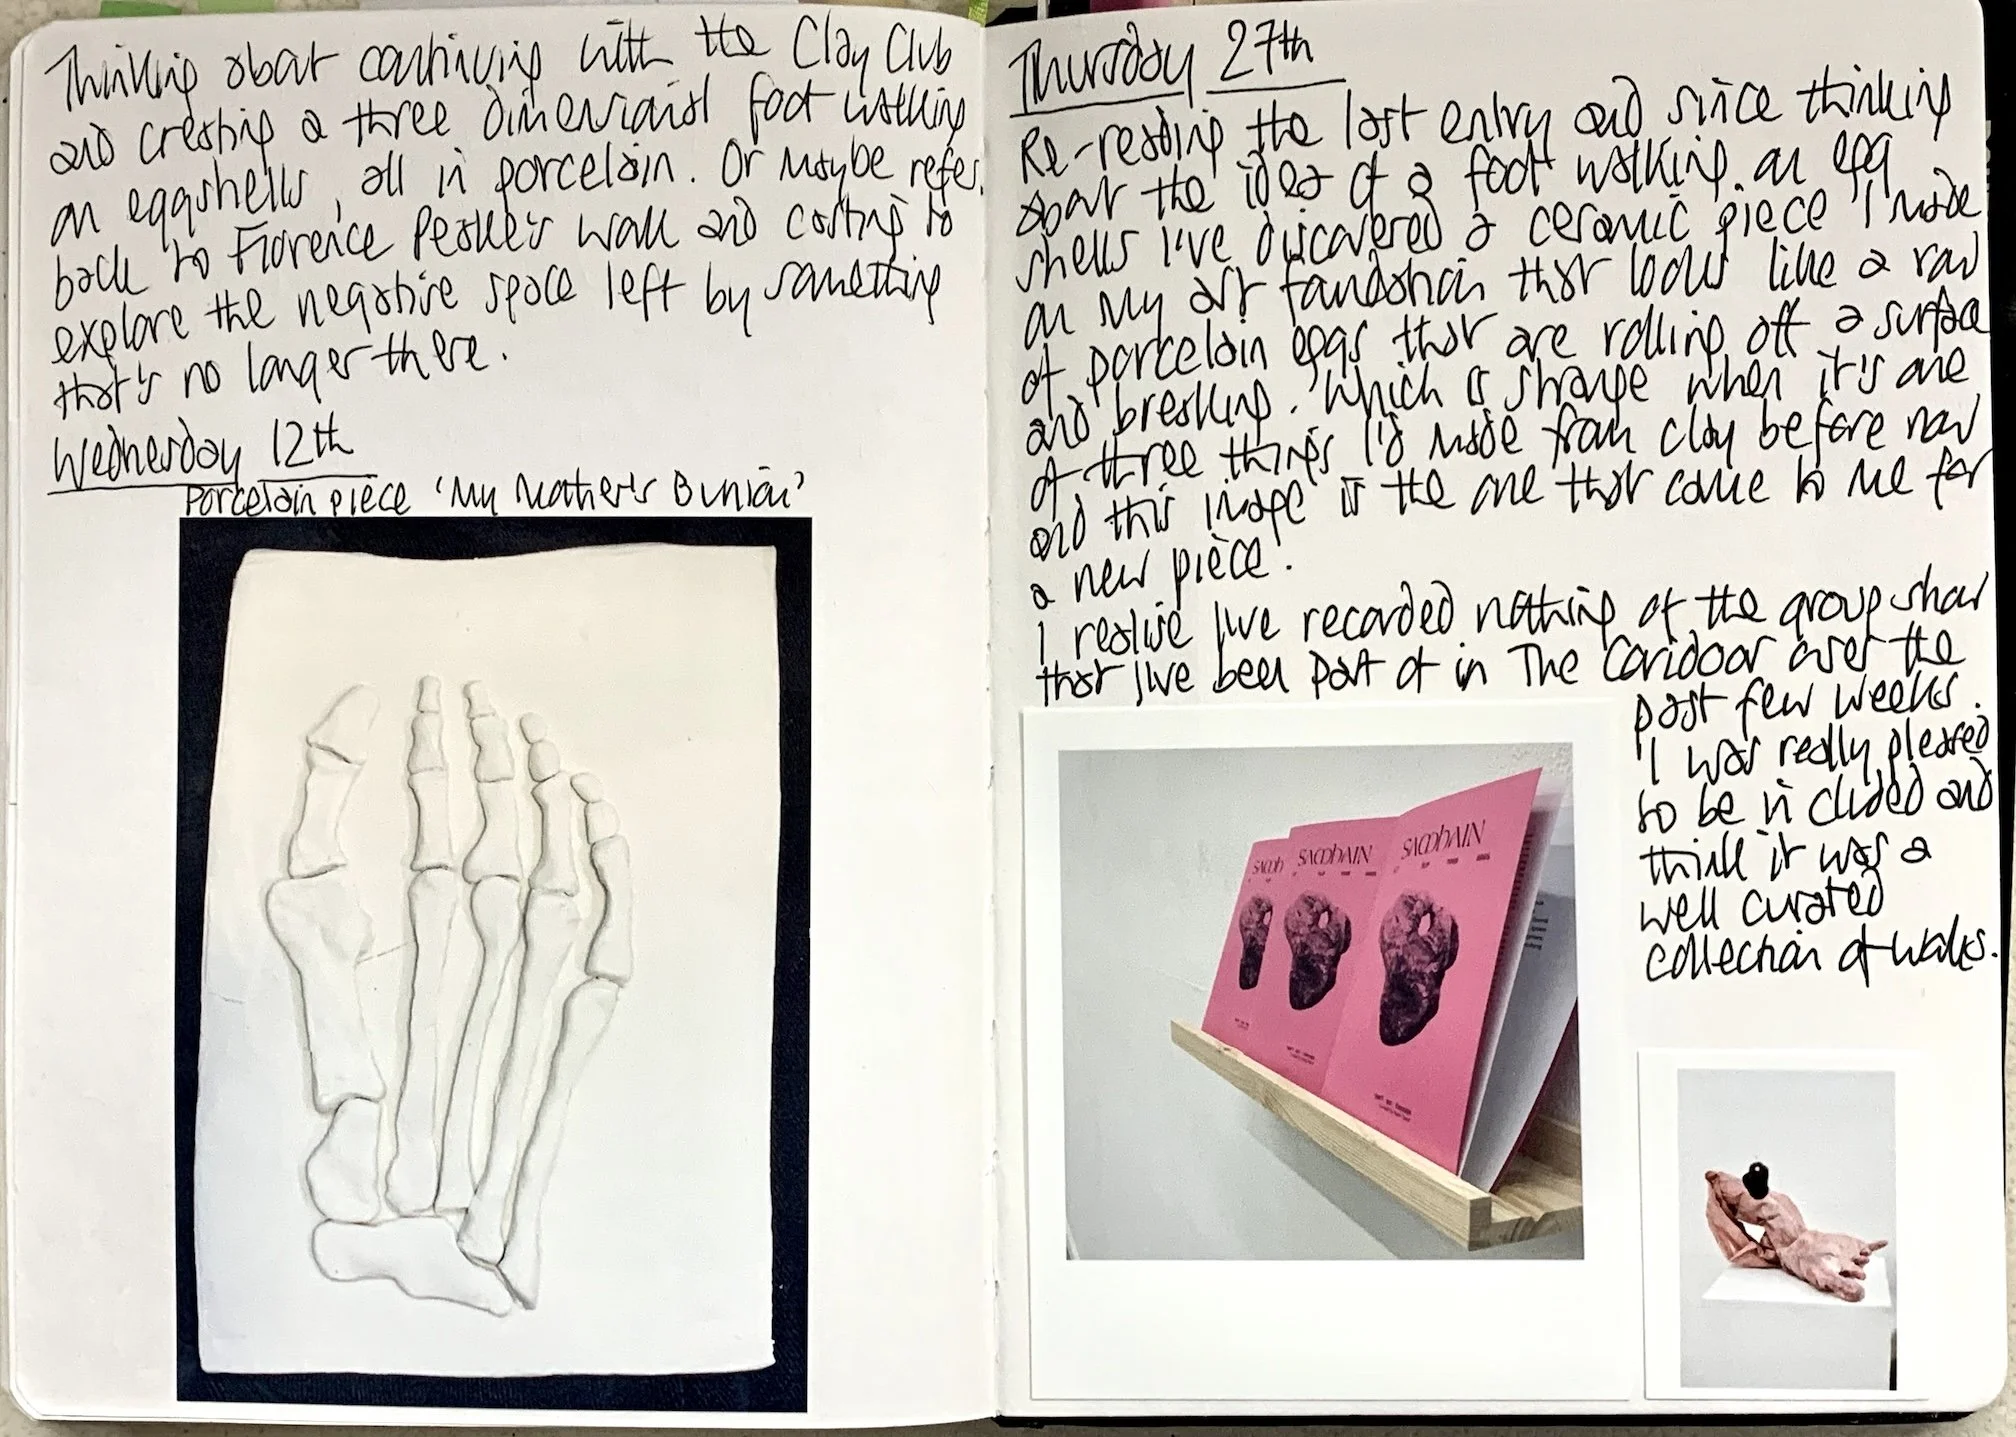 Thinking about continuing with the Clay Club
and creating a three dimensional foot walking
on eggshells, all in porcelain. Or maybe refer
back to Florence Peake's walk and casting to
explore the negative space left by something
that's no longer there.
Wednesday 12th
Porcelain piece 'My Mother's Bunion'
Thursday 27th
Re-reading the last entry and since thinking
about the idea of a foot walking on egg
shells I've discovered a ceramic piece I made
on my art foundation that looks like a row
of porcelain eggs that are rolling off a surface
and breaking. Which is strange when it's one
of three things I'd made from clay before now
and this image is the one that came to me for
a new piece.
I realise I've recorded nothing of the group show
that I've been part of in The Coridoor over the
past few weeks.
I was really pleased
to be included and
think it was a
well curated
collection of works.
SACObAIN
SACOBAIN